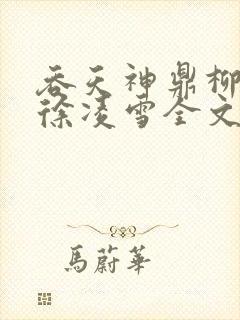 吞天神鼎柳
徐凌雪全文
馬蔚華